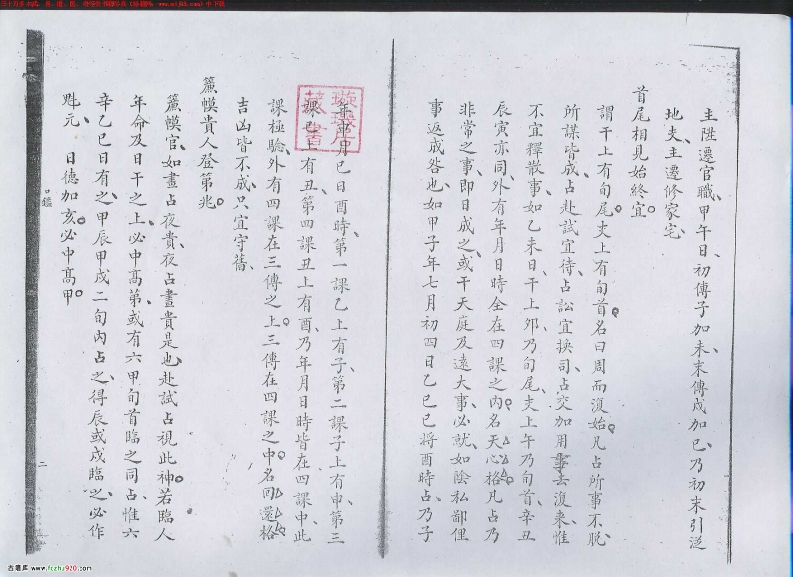 主陞遷官職、甲午日、初傳子加未、末傳戌加巳、乃初末引從
地支、主遷修家宅、
首尾相見始終宜。
謂干上有旬尾、支上有旬首、名曰周而復始、凡占所事不脫、
所謀皆成、占赴試宜待、占訟宜换司、占交加用事去復來、惟
不宜釋散事、如乙未日、干上夘乃旬尾、支上午乃旬首、辛丑
辰寅亦同、外有年月日時全在四課之内、名天心格、凡占乃
非常之事、即日成之、或干天庭及遠大事、必就、如陰私鄙俚
事返成咎也、如甲子年七月初四日乙巳巳將酉時占、乃子
年申月巳日酉時、第一課乙上有子、第二課子上有申、第三
課巳上有丑、第四課丑上有酉、乃年月日時皆在四課中、此
課極驗、外有四課在三傳之上、三傳在四課之中、名回還格
吉凶皆不成、只宜守舊、
簾幙貴人登第兆。
簾幙官、如晝占夜貴、夜占晝貴是也、赴試占視此神、若臨人
年命及日干之上、必中高第、或有六甲旬首臨之同占、惟六
辛乙巳日有之、甲辰甲戌二旬内占之、得辰或戌臨之、必作
魁元、日德加亥、必中高甲。
口鑑
二
璇璣座
藏書
古善库 www.fczhu920.com